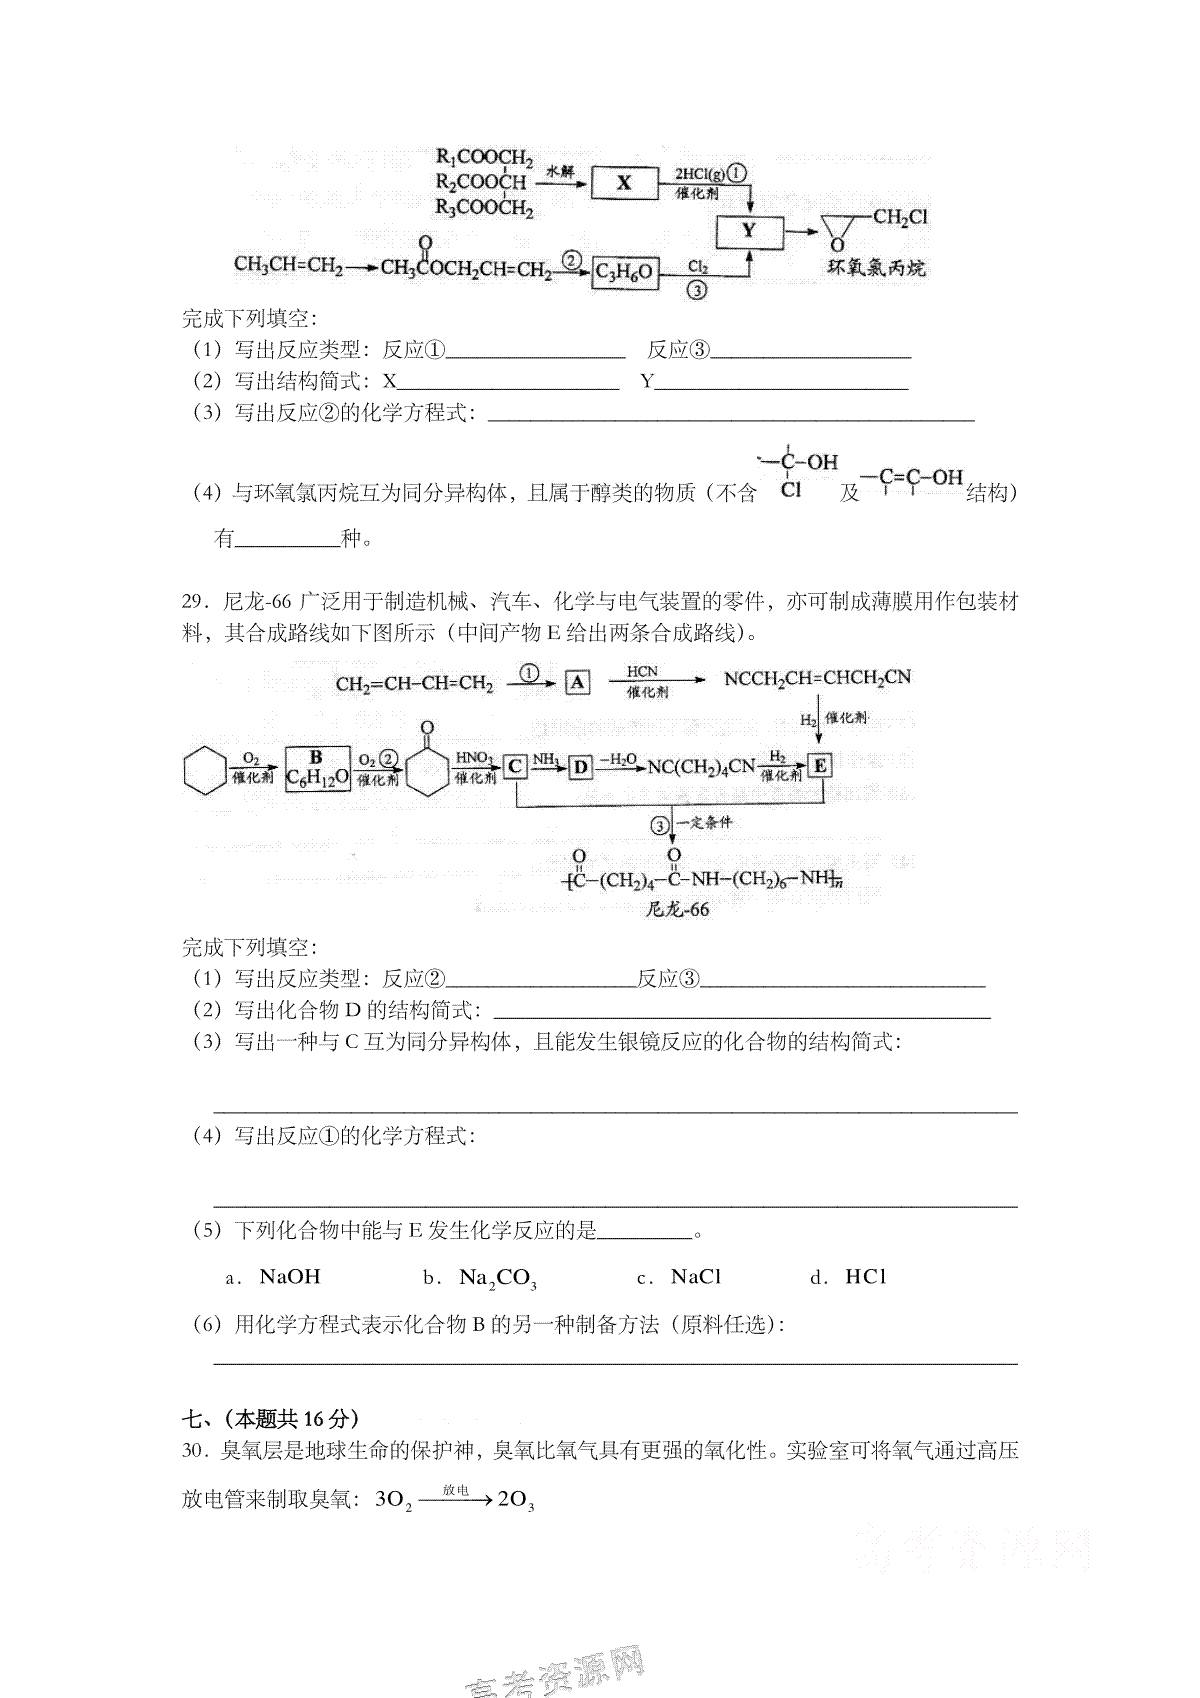 R₁COOCH₂
R₂COOCH 水解 X 2HCl(g)① 催化剂
R₃COOCH₂
Y CH₂Cl
O
环氧氯丙烷
CH₃CH=CH₂ CH₃COCH₂CH=CH₂ O ② C₃H₆O Cl₂ ③
完成下列填空：
（1）写出反应类型：反应①__________ 反应③__________
（2）写出结构简式：X__________ Y__________
（3）写出反应②的化学方程式：__________
（4）与环氧氯丙烷互为同分异构体，且属于醇类的物质（不含 —C—OH Cl 及 —C=C—OH 结构）
有__________种。
29．尼龙-66 广泛用于制造机械、汽车、化学与电气装置的零件，亦可制成薄膜用作包装材
料，其合成路线如下图所示（中间产物 E 给出两条合成路线）。
CH₂=CH-CH=CH₂ ① A HCN 催化剂 NCCH₂CH=CHCH₂CN
H₂ 催化剂
O₂ 催化剂 B C₆H₁₂O O₂② 催化剂 O HNO₃ 催化剂 C NH₃ D -H₂O NC(CH₂)₄CN H₂ 催化剂 E
③ 一定条件
O O
[C-(CH₂)₄-C-NH-(CH₂)₆-NH]n
尼龙-66
完成下列填空：
（1）写出反应类型：反应②__________反应③__________
（2）写出化合物 D 的结构简式：__________
（3）写出一种与 C 互为同分异构体，且能发生银镜反应的化合物的结构简式：
__________
（4）写出反应①的化学方程式：
__________
（5）下列化合物中能与 E 发生化学反应的是__________。
a．NaOH b．Na₂CO₃ c．NaCl d．HCl
（6）用化学方程式表示化合物 B 的另一种制备方法（原料任选）：
__________
七、（本题共 16 分）
30．臭氧层是地球生命的保护神，臭氧比氧气具有更强的氧化性。实验室可将氧气通过高压
放电管来制取臭氧：3O₂ 放电→ 2O₃
高考资源网
高考资源网